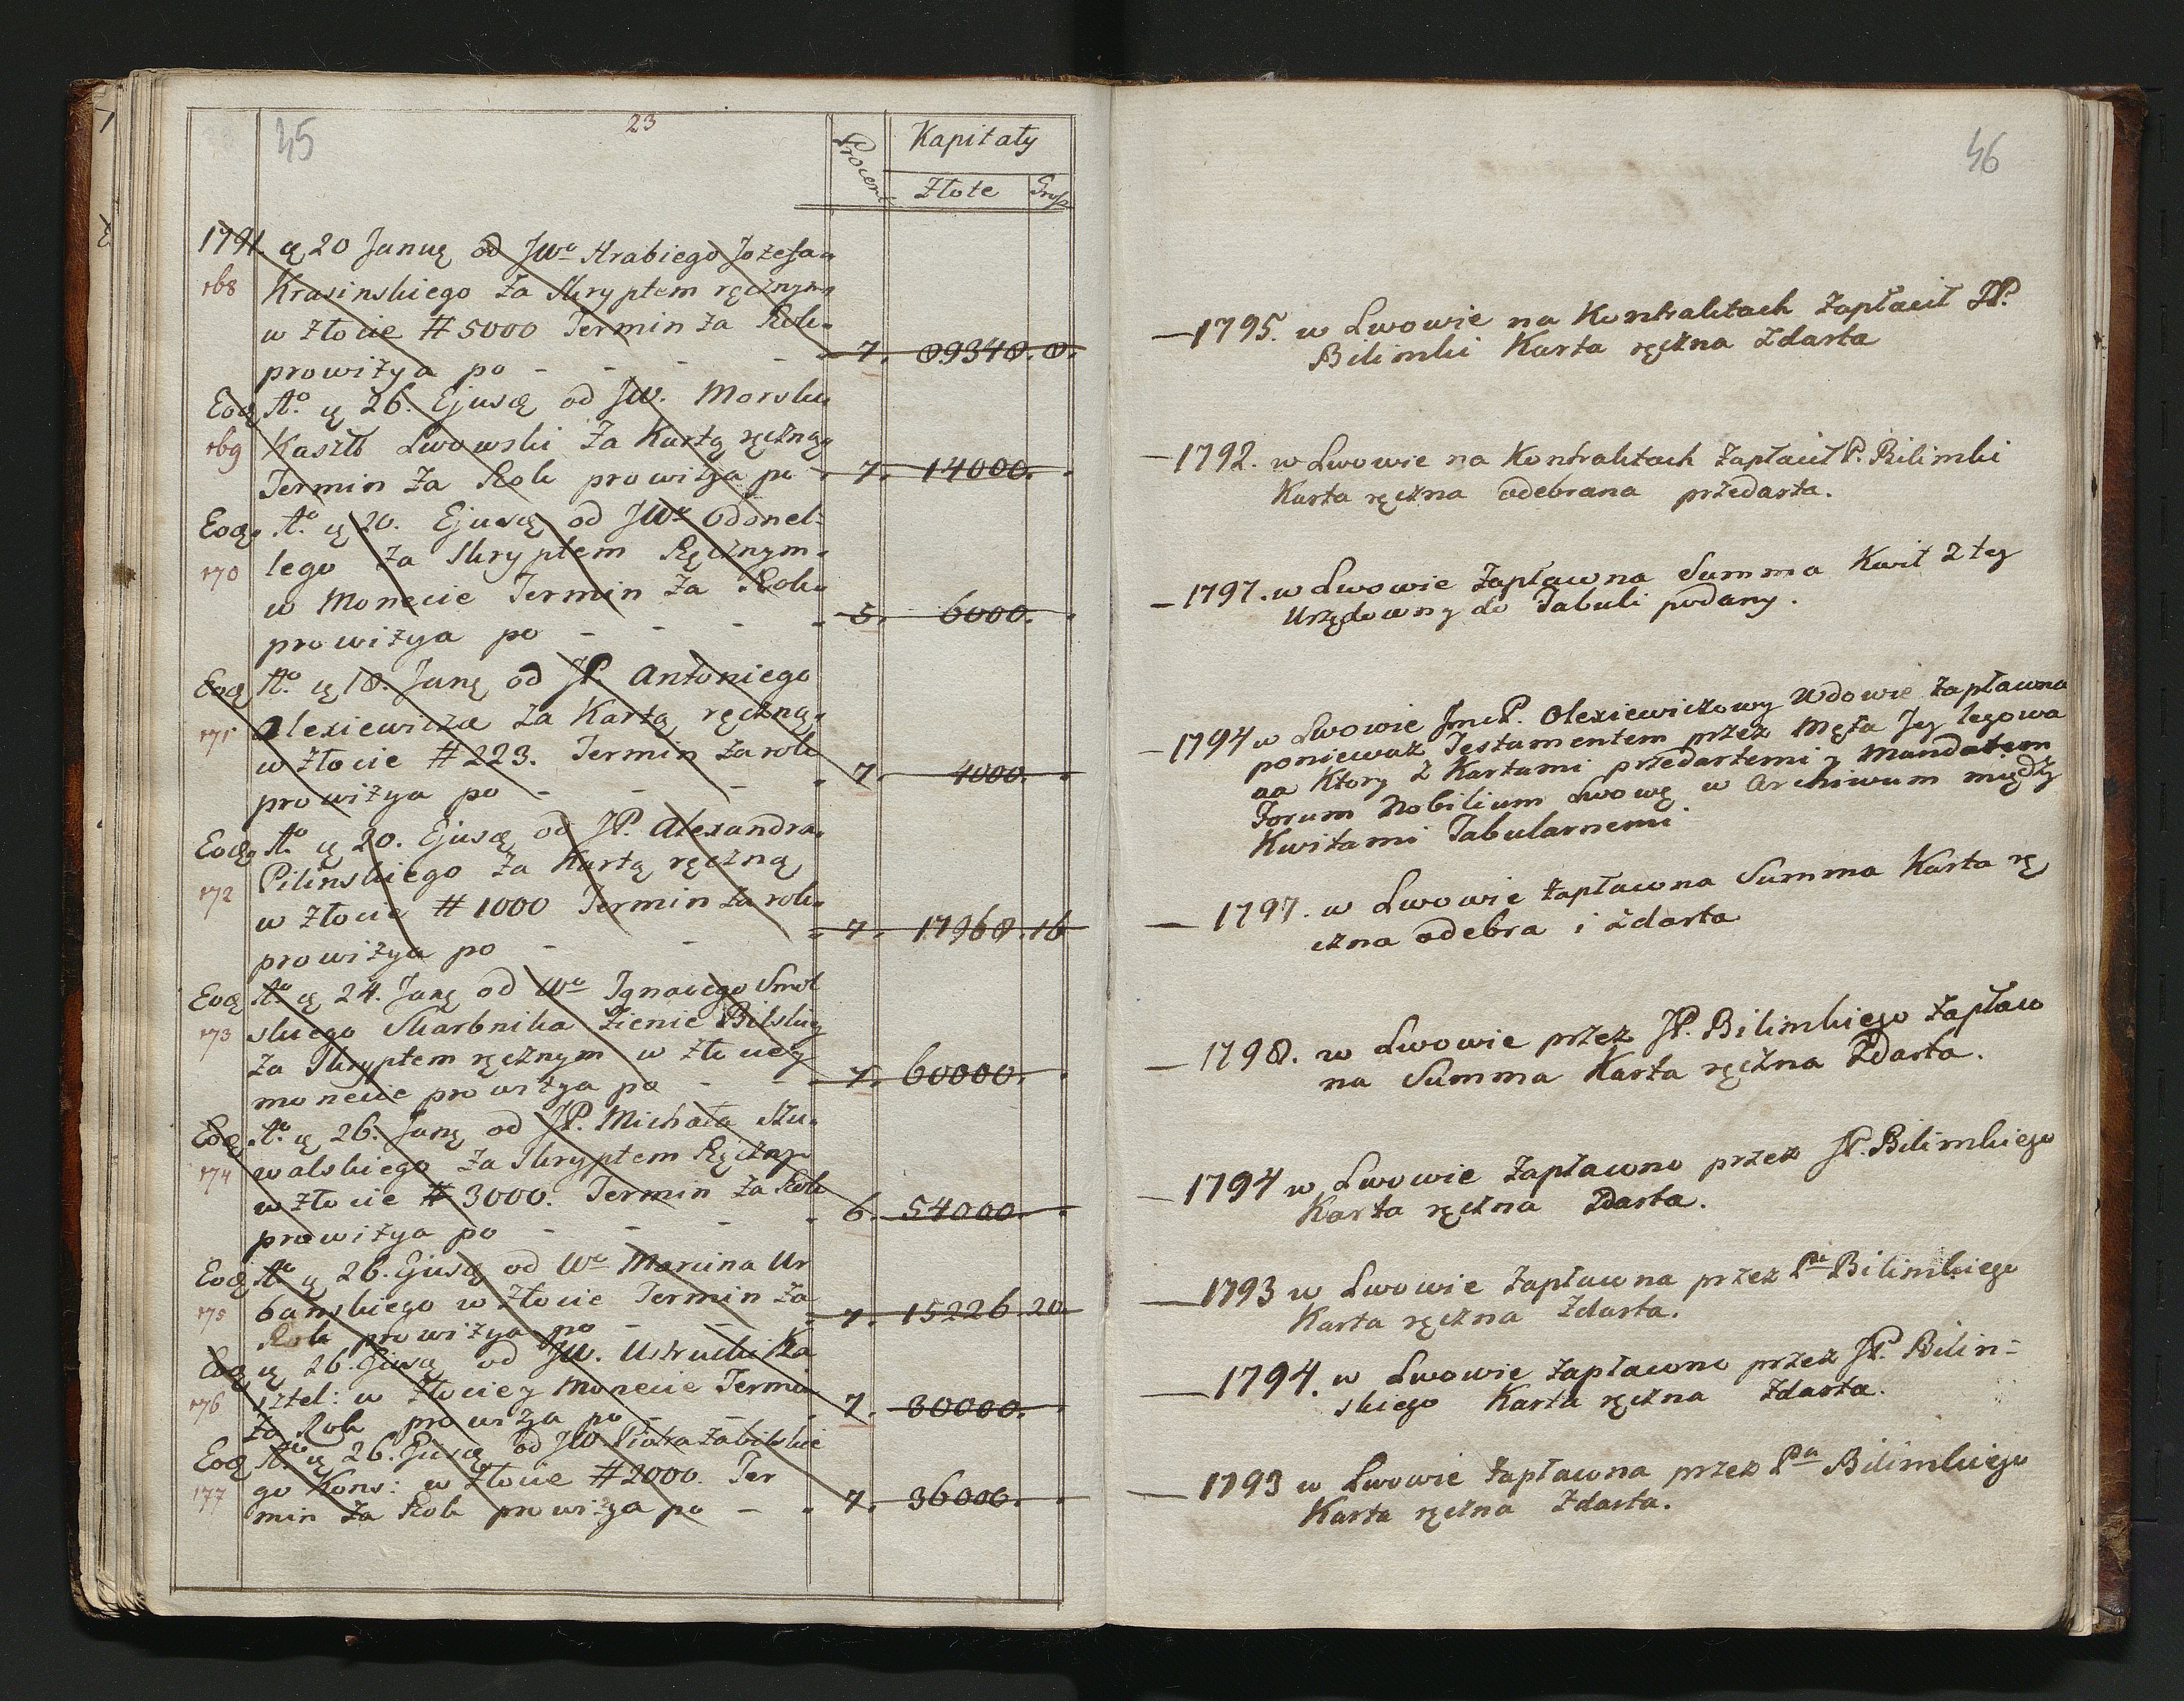 45
23
Procent
Kapitały
Złote
Grosz
1791. ą 20 Januą od JWo Hrabiego Jozefa
168 Krasinskiego Za Skryptem ręcznym
w Złocie # 5000 Termin Za Rok
prowizya po - - - - 7. 89348. 8.
Eoą Ao. ą 26. Ejusą od JW. Morski
169 Kasztl Lwowski Za Kartą ręczną
Termin Za Rok prowizya po - 7. 14000.
Eoą Ao. ą 20. Ejusą od JWo Odonel:
170 lego Za Skryptem Ręcznym
w Monecie Termin Za Rok
prowizya po - - - - 5. 6000.
Eoą Ao. ą 18. Janą od JP. Antoniego
171 Olexiewicza Za Kartą ręczną
w Złocie # 223. Termin Za rok
prowizya po - - - 7. 4000.
Eoą Ao ą 20. Ejusą od JP. Alexandra
172 Pilinskiego Za Kartą ręczną
w Złocie # 1000 Termin Za rok
prowizya po - - - 7. 17968. 16
Eoą Ao ą 24. Janą od Wo Ignacego Smol
173 skiego Skarbnika Zienie Bilskiy
Za Skryptem ręcznym w Złocie y
monecie prowizya po - - 7. 60000.
Eoą Ao. ą 26. Janą od JP. Michała Su
174 walskiego Za Skryptem Ręczny
w Złocie # 3000. Termin Za Rok
prowizya po - - - 6. 54000.
Eoą Ao ą 26. Ejusą od Wo Marcina Ur
175 banskiego w Złocie Termin Za
Rok prowizya po - - 7. 15226. 20
Eoą ą 26. Ejusą od JW. Ustrucki Ka
176 sztel: w Złocie y Monecie Termin
Za Rok prowizya po - - 7. 30000.
Eoą Ao. ą 26. Ejusą od JW. Piotra Zabilskie
177 go Kons: w Złocie # 2000. Ter
min Za Rok prowizya po - 7. 36000.
46
— 1795. w Lwowie na Kontraktach Zapłacił JP.
Bilinski Karta ręczna Zdarta
— 1792. w Lwowie na Kontraktach Zapłacił P. Bilinski
Karta ręczna odebrana przedarta.
— 1797. w Lwowie Zapłacona Summa Kwit Z tey
Urzędowny do Tabuli podany.
— 1794 w Lwowie JmcP. Olexiewiczowy Wdowie Zapłacona
ponieważ Testamentem przez Męża Jey legowa
na Ktory Z Kartami przedartemi y Mandatem
Forum Nobilium Lwową w Archiwum między
Kwitami Tabularnemi.
— 1797. w Lwowie Zapłacona Summa Karta rę
czna odebra i Zdarta
— 1798. w Lwowie przez JP. Bilinskiego Zapłaco
na Summa Karta ręczna Zdarta.
— 1794 w Lwowie Zapłacono przez JP. Bilinskiego
Karta ręczna Zdarta.
— 1793 w Lwowie Zapłacona przez Pa Bilinskiego
Karta ręczna Zdarta.
— 1794. w Lwowie Zapłacono przez JP. Bilin=
skiego Karta ręczna Zdarta.
— 1793 w Lwowie Zapłacona przez Pa Bilinskiego
Karta ręczna Zdarta.